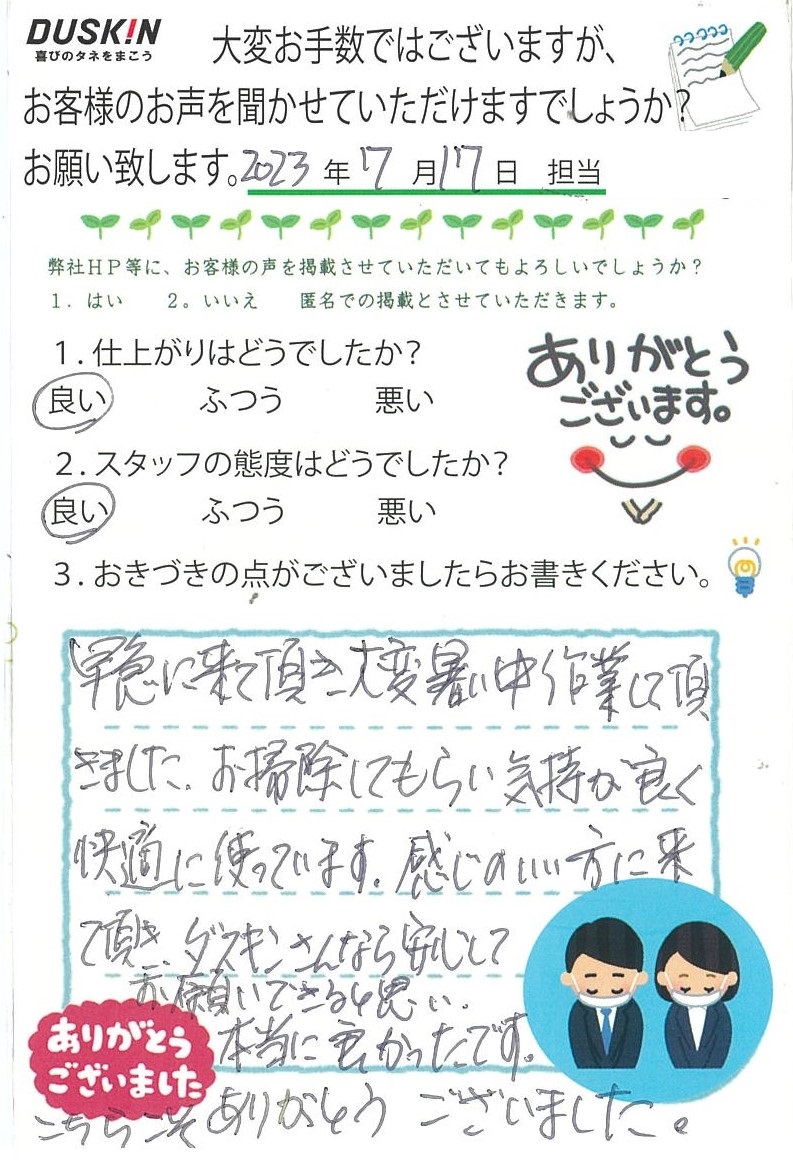 DUSKIN
喜びのタネをまこう
大変お手数ではございますが、
お客様のお声を聞かせていただけますでしょうか?
お願い致します。2023年7月17日 担当
弊社HP等に、お客様の声を掲載させていただいてもよろしいでしょうか?
1. はい 2。いいえ 匿名での掲載とさせていただきます。
1.仕上がりはどうでしたか?
良い ふつう 悪い
ありがとう
ございます。
2.スタッフの態度はどうでしたか?
良い ふつう 悪い
3.おきづきの点がございましたらお書きください。
早急に来て頂き、大変暑い中作業して頂
きました。お掃除してもらい気持が良く
快適に使っています。感じのいい方に来
て頂き、ダスキンさんなら安心して
お願いできると思い、
本当に良かったです。
ありがとう
ございました
こちらこそありがとうございました。